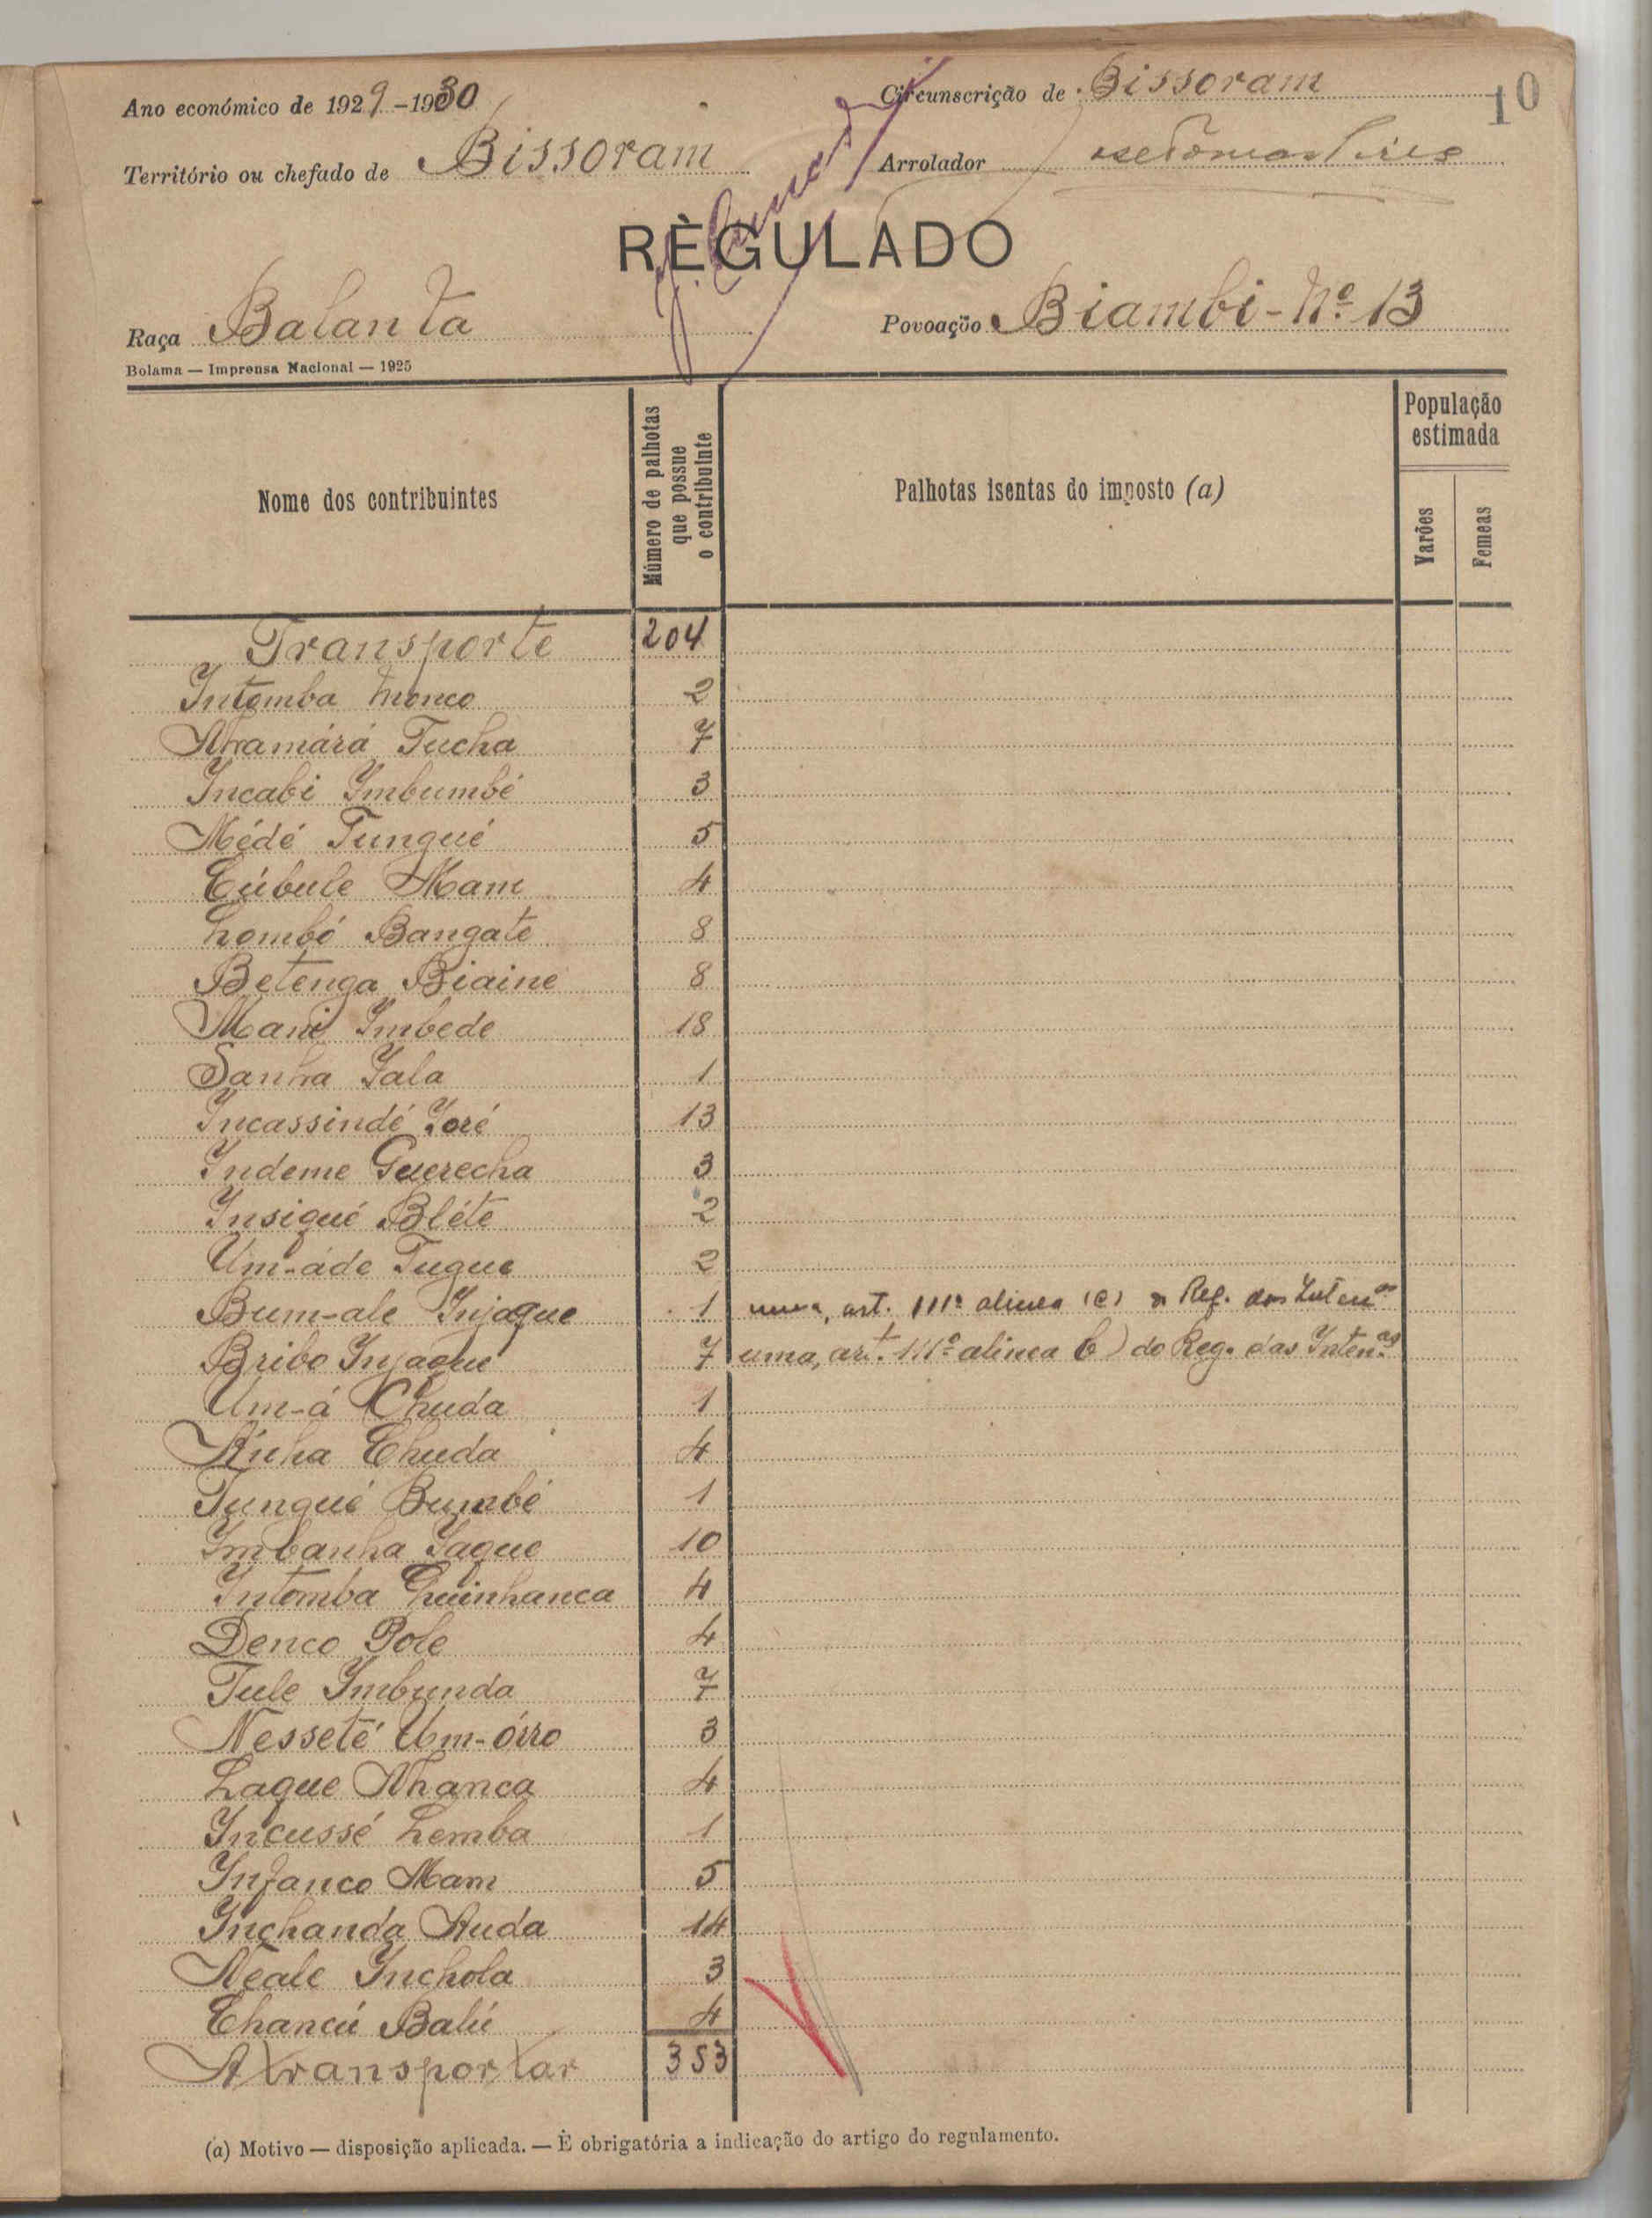 Ano económico de 1929-1930
Circunscrição de Bissoram
10
Território ou chefado de Bissoram
Arrolador
RÈGULADO
Raça Balanta
Povoação Biambi-Nº 13
Bolama — Imprensa Nacional — 1925
Nome dos contribuintes
Número de palhotas que possue o contribuinte
Palhotas isentas do imposto (a)
População estimada
Varões
Femeas
Transporte 204
Intomba Monco 2
Aramárá Tucha 7
Incabi Imbumbé 3
Médé Tungué 5
Cúbule Mam 4
Lombó Bangate 8
Betenga Biaine 8
Mani Imbede 18
Sanha Iala 1
Incassindé Ioré 13
Indeme Guerecha 3
Insigué Bléte 2
Um-áde Tugue 2
Bum-ale Injaque 1 uma, art. 111º alinea (e) Reg. das Inten.as
Bribo Injaque 7 uma, art. 111º alinea b) do Reg. das Inten.as
Um-á Chuda 1
Anha Chuda 4
Tungué Bumbé 1
Imbanha Iaque 10
Intomba Quinhanca 4
Denco Pole 4
Tule Imbunda 7
Nesseté Um-órro 3
Laque Nhanca 4
Incussé Lemba 1
Infanco Mam 5
Inchanda Auda 14
Neale Inchola 3
Chancú Balú 4
A transportar 353
(a) Motivo — disposição aplicada. — É obrigatória a indicação do artigo do regulamento.